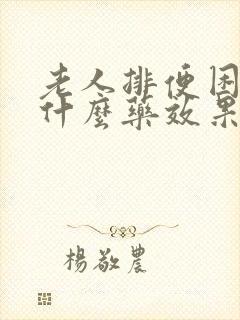 老人排便困
什麼藥效果
楊敬農